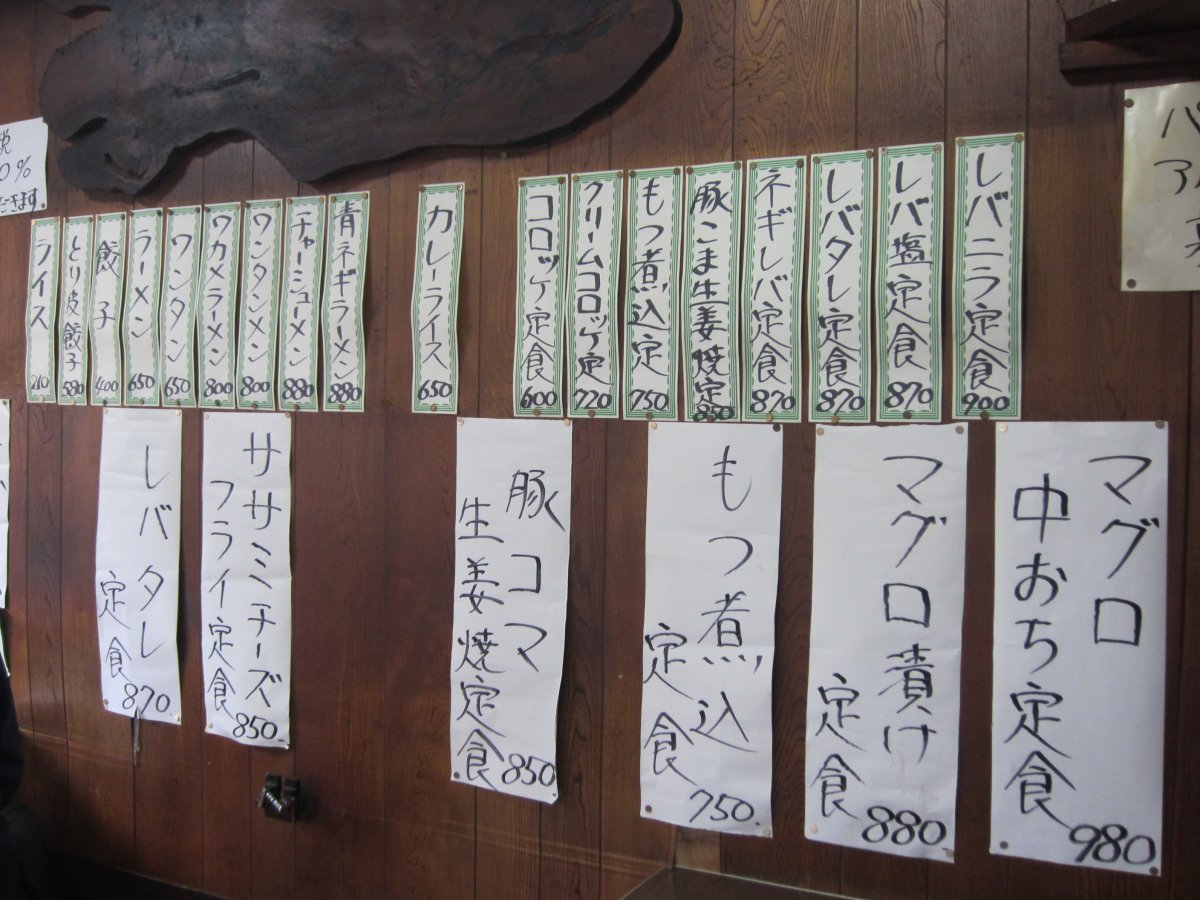 レバニラ定食
900
レバ塩定食
870
レバタレ定食
870
ネギレバ定食
870
豚こま生姜焼定
850
もつ煮込定
750
クリームコロッケ定
720
コロッケ定食
600
カレーライス
650
青ネギラーメン
880
チャーシューメン
880
ワンタンメン
800
ワカメラーメン
800
ワンタン
650
ラーメン
650
餃子
400
とり皮餃子
580
ライス
210
マグロ
中おち定食
980
マグロ漬け
定食
880
もつ煮込
定食
750.
豚コマ
生姜焼定食
850
ササミチーズ
フライ定食
850.
レバタレ
定食
870.
税
0%
だきます